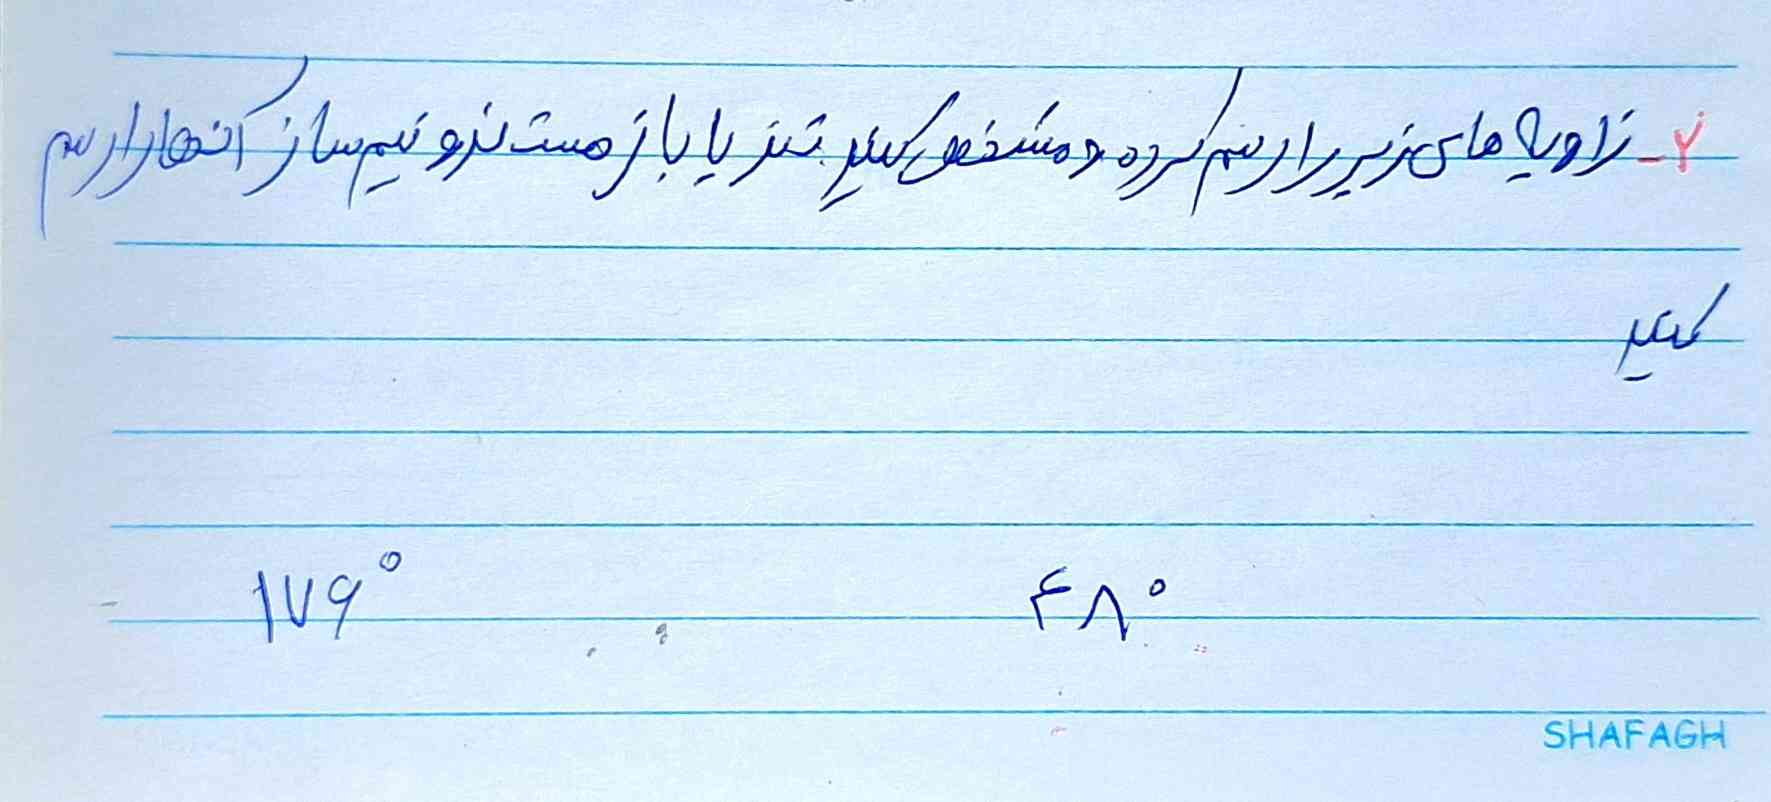 ۲- زاویه های زیر را رسم کرده و مشخص کنید تند یا باز هستند و نیم ساز آنها را رسم
کنید
۴۸° ۱۷۶°
SHAFAGH